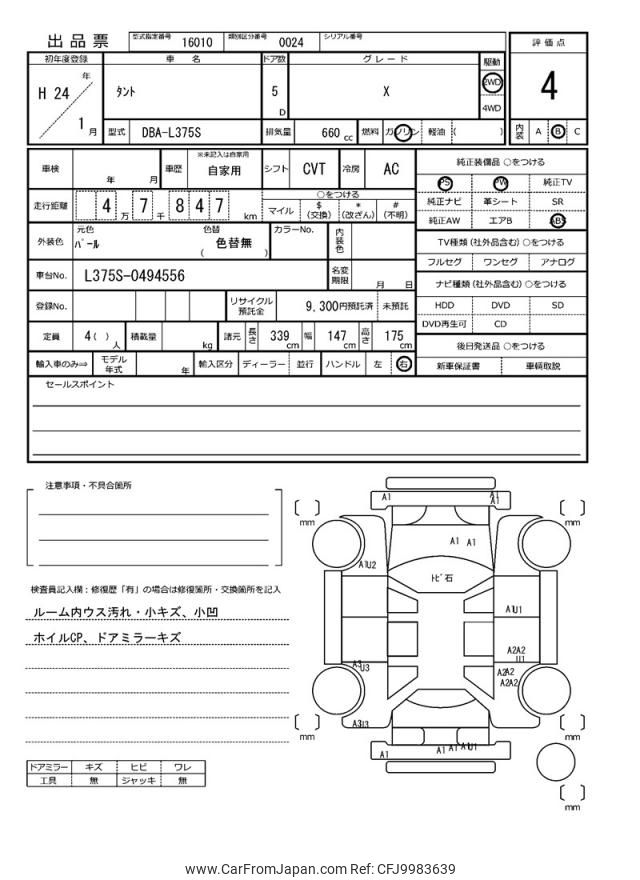 出品票 型式指定番号 16010 類別区分番号 0024 シリアル番号
評価点
4
内装 A B C
初年度登録 車名 ドア数 グレード 駆動
H 24 年 1 月 タント 5 D X 2WD 4WD
型式 DBA-L375S 排気量 660 cc 燃料 ガソリン 軽油 ( )
車検 年 月 車歴 ※未記入は自家用 自家用 シフト CVT 冷房 AC
走行距離 4 万 7 千 8 4 7 km ○をつける
マイル $ (交換) * (改ざん) # (不明)
外装色 元色 パール 色替 色替無 ( ) カラーNo. 内装色
車台No. L375S-0494556 名変期限 月 日
登録No. リサイクル預託金 9,300円預託済 未預託
定員 4( ) 人 積載量 kg 諸元 長さ 339 cm 幅 147 cm 高さ 175 cm
輸入車のみ⇒ モデル年式 年 輸入区分 ディーラー 並行 ハンドル 左 右
純正装備品 ○をつける
PS PW 純正TV
純正ナビ 革シート SR
純正AW エアB ABS
TV種類 (社外品含む) ○をつける
フルセグ ワンセグ アナログ
ナビ種類 (社外品含む) ○をつける
HDD DVD SD
DVD再生可 CD
後日発送品 ○をつける
新車保証書 車輌取説
セールスポイント
注意事項・不具合箇所
検査員記入欄：修復歴「有」の場合は修復箇所・交換箇所を記入
ルーム内ウス汚れ・小キズ、小凹
ホイルCP、ドアミラーキズ
ドアミラー キズ ヒビ ワレ
工具 無 ジャッキ 無
A1 A1
A1
mm mm
A1 A1
A1U2
トビ石
A1U1
A2A2
U1
A3 U3
A2A2
A2A2
A3
mm mm
A1 A1 A1 A1U1
mm
www.CarFromJapan.com Ref: CFJ9983639